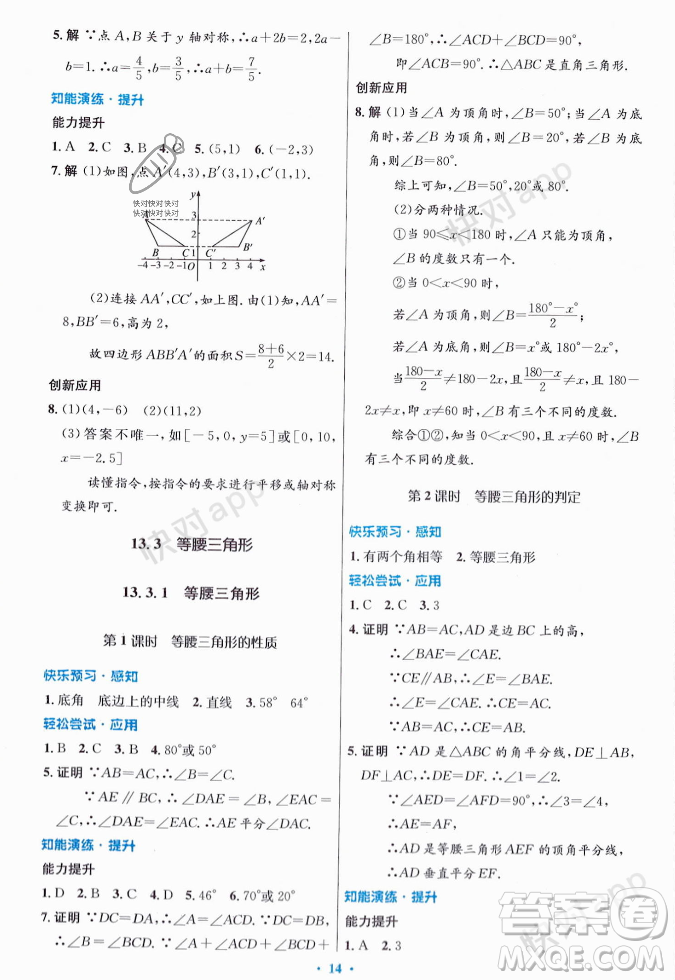 5. 解 ∵点 A,B 关于 y 轴对称,∴a+b=2,2a-
b=1.∴a=4/5+3/5,b=7/5.
知能演练·提升
能力提升
1. A 2. C 3. B 4. C 5. (5,1) 6. (-2,3)
7. 解 (1)如图,点 A′(4,3),B′(3,1),C′(1,1).
快对快对快对
快对快对快对
y
3
2
1
A′
B C C′ B′
-4 -3 -2 -1 O 1 2 3 4 x
(2)连接 AA′,CC′,如上图.由(1)知,AA′=
8,BB′=6,高为 2,
故四边形 ABB′A′的面积 S=(8+6)/2×2=14.
创新应用
8. (1)(4,-6) (2)(11,2)
(3)答案不唯一,如[-5,0,y=5]或[0,10,
x=-2.5]
读懂指令,按指令的要求进行平移或轴对称
变换即可.
13.3 等腰三角形
13.3.1 等腰三角形
第1课时 等腰三角形的性质
快乐预习·感知
1. 底角 底边上的中线 2. 直线 3. 58° 64°
轻松尝试·应用
1. B 2. C 3. B 4. 80°或 50°
5. 证明 ∵AB=AC,∴∠B=∠C.
∵AE∥BC,∴∠DAE=∠B,∠EAC=
∠C,∴∠DAE=∠EAC.∴AE 平分∠DAC.
知能演练·提升
能力提升
1. D 2. B 3. A 4. D 5. 46° 6. 70°或 20°
7. 证明 ∵DC=DA,∴∠A=∠ACD.∵DC=
DB,∴∠B=∠BCD.∵∠A+∠ACD+∠BCD+
∠B=180°,∴∠ACD+∠BCD=90°,
即∠ACB=90°.∴△ABC 是直角三角形.
创新应用
8. 解 (1)当∠A 为顶角,则∠B=50°;当∠A 为底
角时,若∠B 为顶角,则∠B=20°;若∠B 为底
角时,则∠B=80°.
综上可知,∠B=50°,20°或 80°.
(2)分两种情况.
①当 90≤x<180 时,∠A 只能为顶角,
∠B 的度数只有一个.
②当 0<x<90 时,
若∠A 为顶角,则∠B=(180°-x°)/2;
若∠A 为底角,∠B=x°或∠B=180°-2x°.
当(180-x)/2≠180-2x,且(180-x)/2≠x,且 180-
2x≠x,即 x≠60 时,∠B 有三个不同的度数.
综合①②,当 0<x<90,且 x≠60 时,∠B
有三个不同的度数.
第2课时 等腰三角形的判定
快乐预习·感知
1. 有两个角相等 2. 等腰三角形
轻松尝试·应用
1. C 2. C 3. 3
4. 证明 ∵AB=AC,AD 是边 BC 上的高,
∴∠BAE=∠CAE.
∵CE∥AB,∴∠E=∠BAE.
∴∠E=∠CAE.
∴CE=AC.
∵AB=AC,∴CE=AB.
5. 证明 ∵AD 是△ABC 的角平分线,DE⊥AB,
DF⊥AC,∴DE=DF,∠1=∠2.
∵∠AED=∠AFD=90°,∴∠3=∠4.
∴AE=AF.
∴AD 是等腰三角形 AEF 的顶角平分线.
∴AD 垂直平分 EF.
知能演练·提升
能力提升
1. A 2. 3
·14·
快对app
快对app
快对app
快对app
答案卷
MXQE.COM